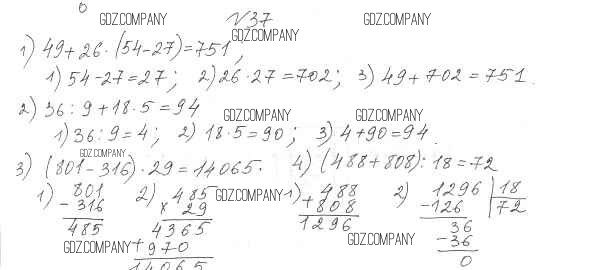 0
GDZ.COMPANY №37 GDZ.COMPANY
1) 49+26·(54-27)=751, GDZ.COMPANY
1) 54-27=27; 2) 26·27=702; 3) 49+702=751.
2) 36:9+18·5=94
GDZ.COMPANY GDZ.COMPANY
1) 36:9=4; 2) 18·5=90; 3) 4+90=94.
GDZ.COMPANY
3) (801-316)·29=14065. 4) (488+808):18=72
1) 801 2) 485 GDZ.COMPANY 1) 488 2) 1296 | 18
- 316 × 29 + 808 -126 72
485 4365 1296 36
GDZ.COMPANY + 970 GDZ.COMPANY -36
14065 0